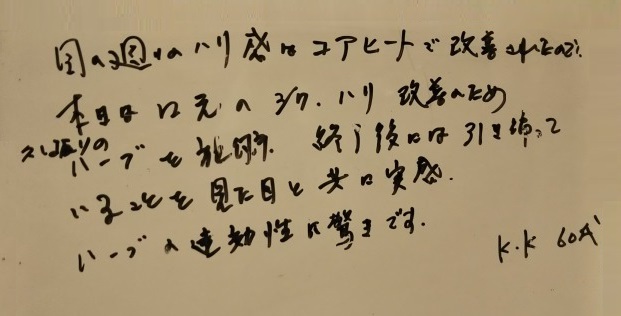 目の週りのハリ感はコアヒートで改善されたので、
本日は口元のシワ、ハリ改善のため
久し振りの
ハーブを施術。終了後には引き締って
いることを見た目と共に実感。
ハーブの速効性に驚きです。
K.K 60代